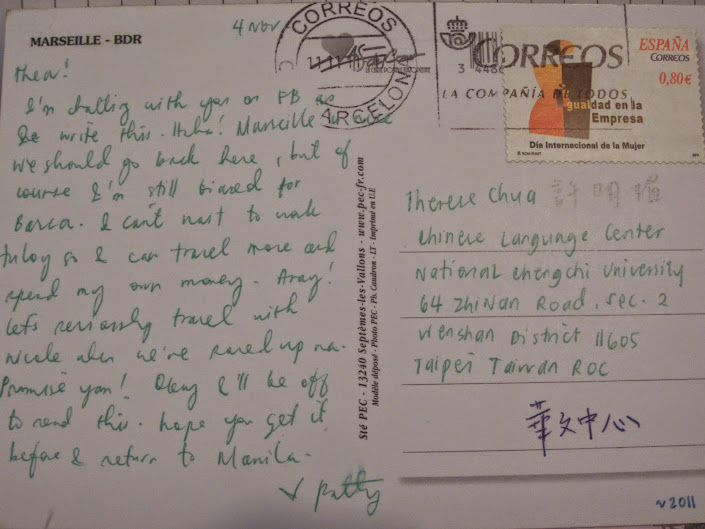 MARSEILLE - BDR
4 Nov
Thea!
I'm chatting with you on FB as
I write this. Haha! Marseille is nice
we should go back here, but of
course I'm still biased for
Barca. I can't wait to work
tuloy so I can travel more and
spend my own money. Aray!
Let's seriously travel with
Nicole when we've saved up na.
Promise yan! Okay I'll be off
to send this. hope you get it
before I return to Manila.
Patty
Sté PEC - 13240 Septèmes-les-Vallons - www.pec-fr.com
Modèle déposé - Photo PEC - Ph. Caudron - LT - Imprimé en U.E
CORREOS
BARCELONA
CORREOS
LA COMPAÑÍA DE TODOS
ESPAÑA
CORREOS
0,80€
Igualdad en la
Empresa
Día Internacional de la Mujer
Therese Chua 許明瑄
Chinese Language Center
National Chengchi University
64 ZhiNan Road, Sec. 2
Wenshan District 11605
Taipei Taiwan ROC
華文中心
~2011